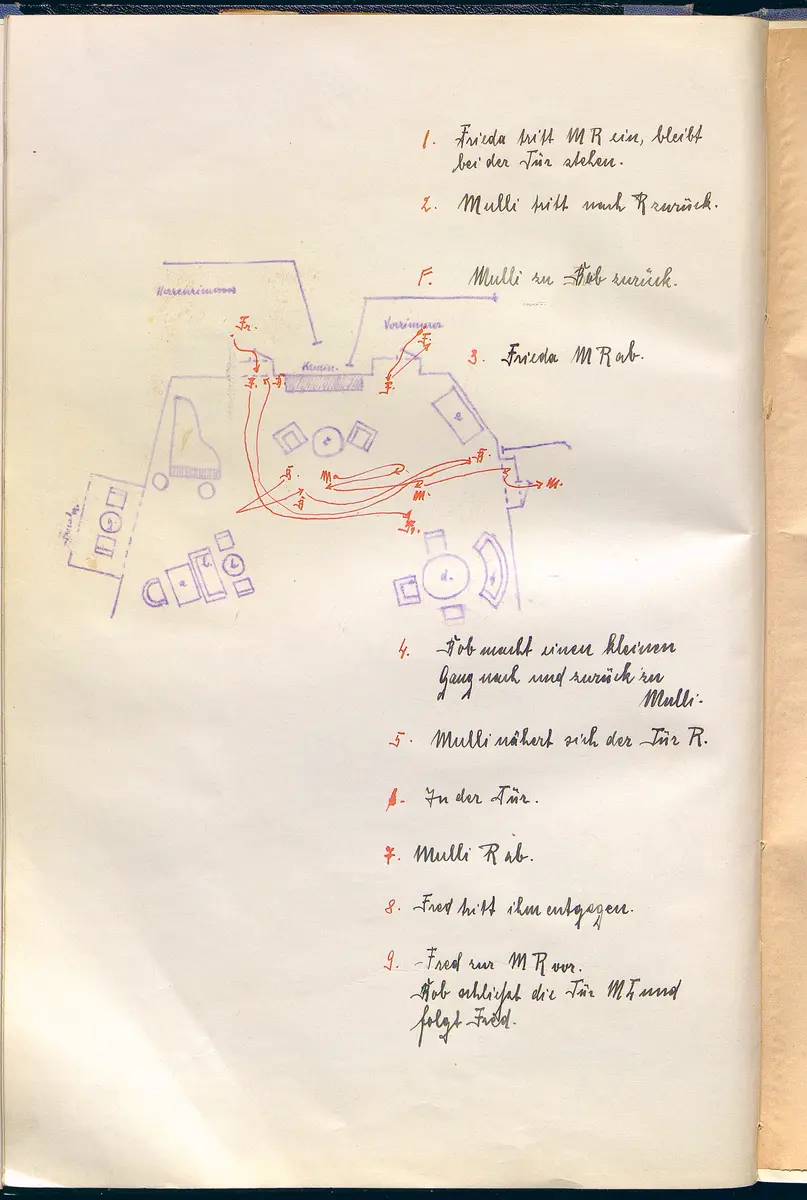 1. Frieda tritt MR ein, bleibt
bei der Tür stehen.
2. Mulli tritt nach R zurück.
F. Mulli zu Bob zurück.
Herrenzimmer
Vorzimmer
Fr.
F.
Kamin.
3. Frieda MR ab.
F. B.
F.
e
c
B.
M.
B.
M.
M.
B.
Fr.
a b. c
d.
4. Bob macht einen kleinen
Gang nach und zurück zu
Mulli.
5. Mulli nähert sich der Tür R.
6. In der Tür.
7. Mulli R ab.
8. Fred tritt ihm entgegen.
9. Fred zur MR vor.
Bob schließt die Tür ML und
folgt Fred.